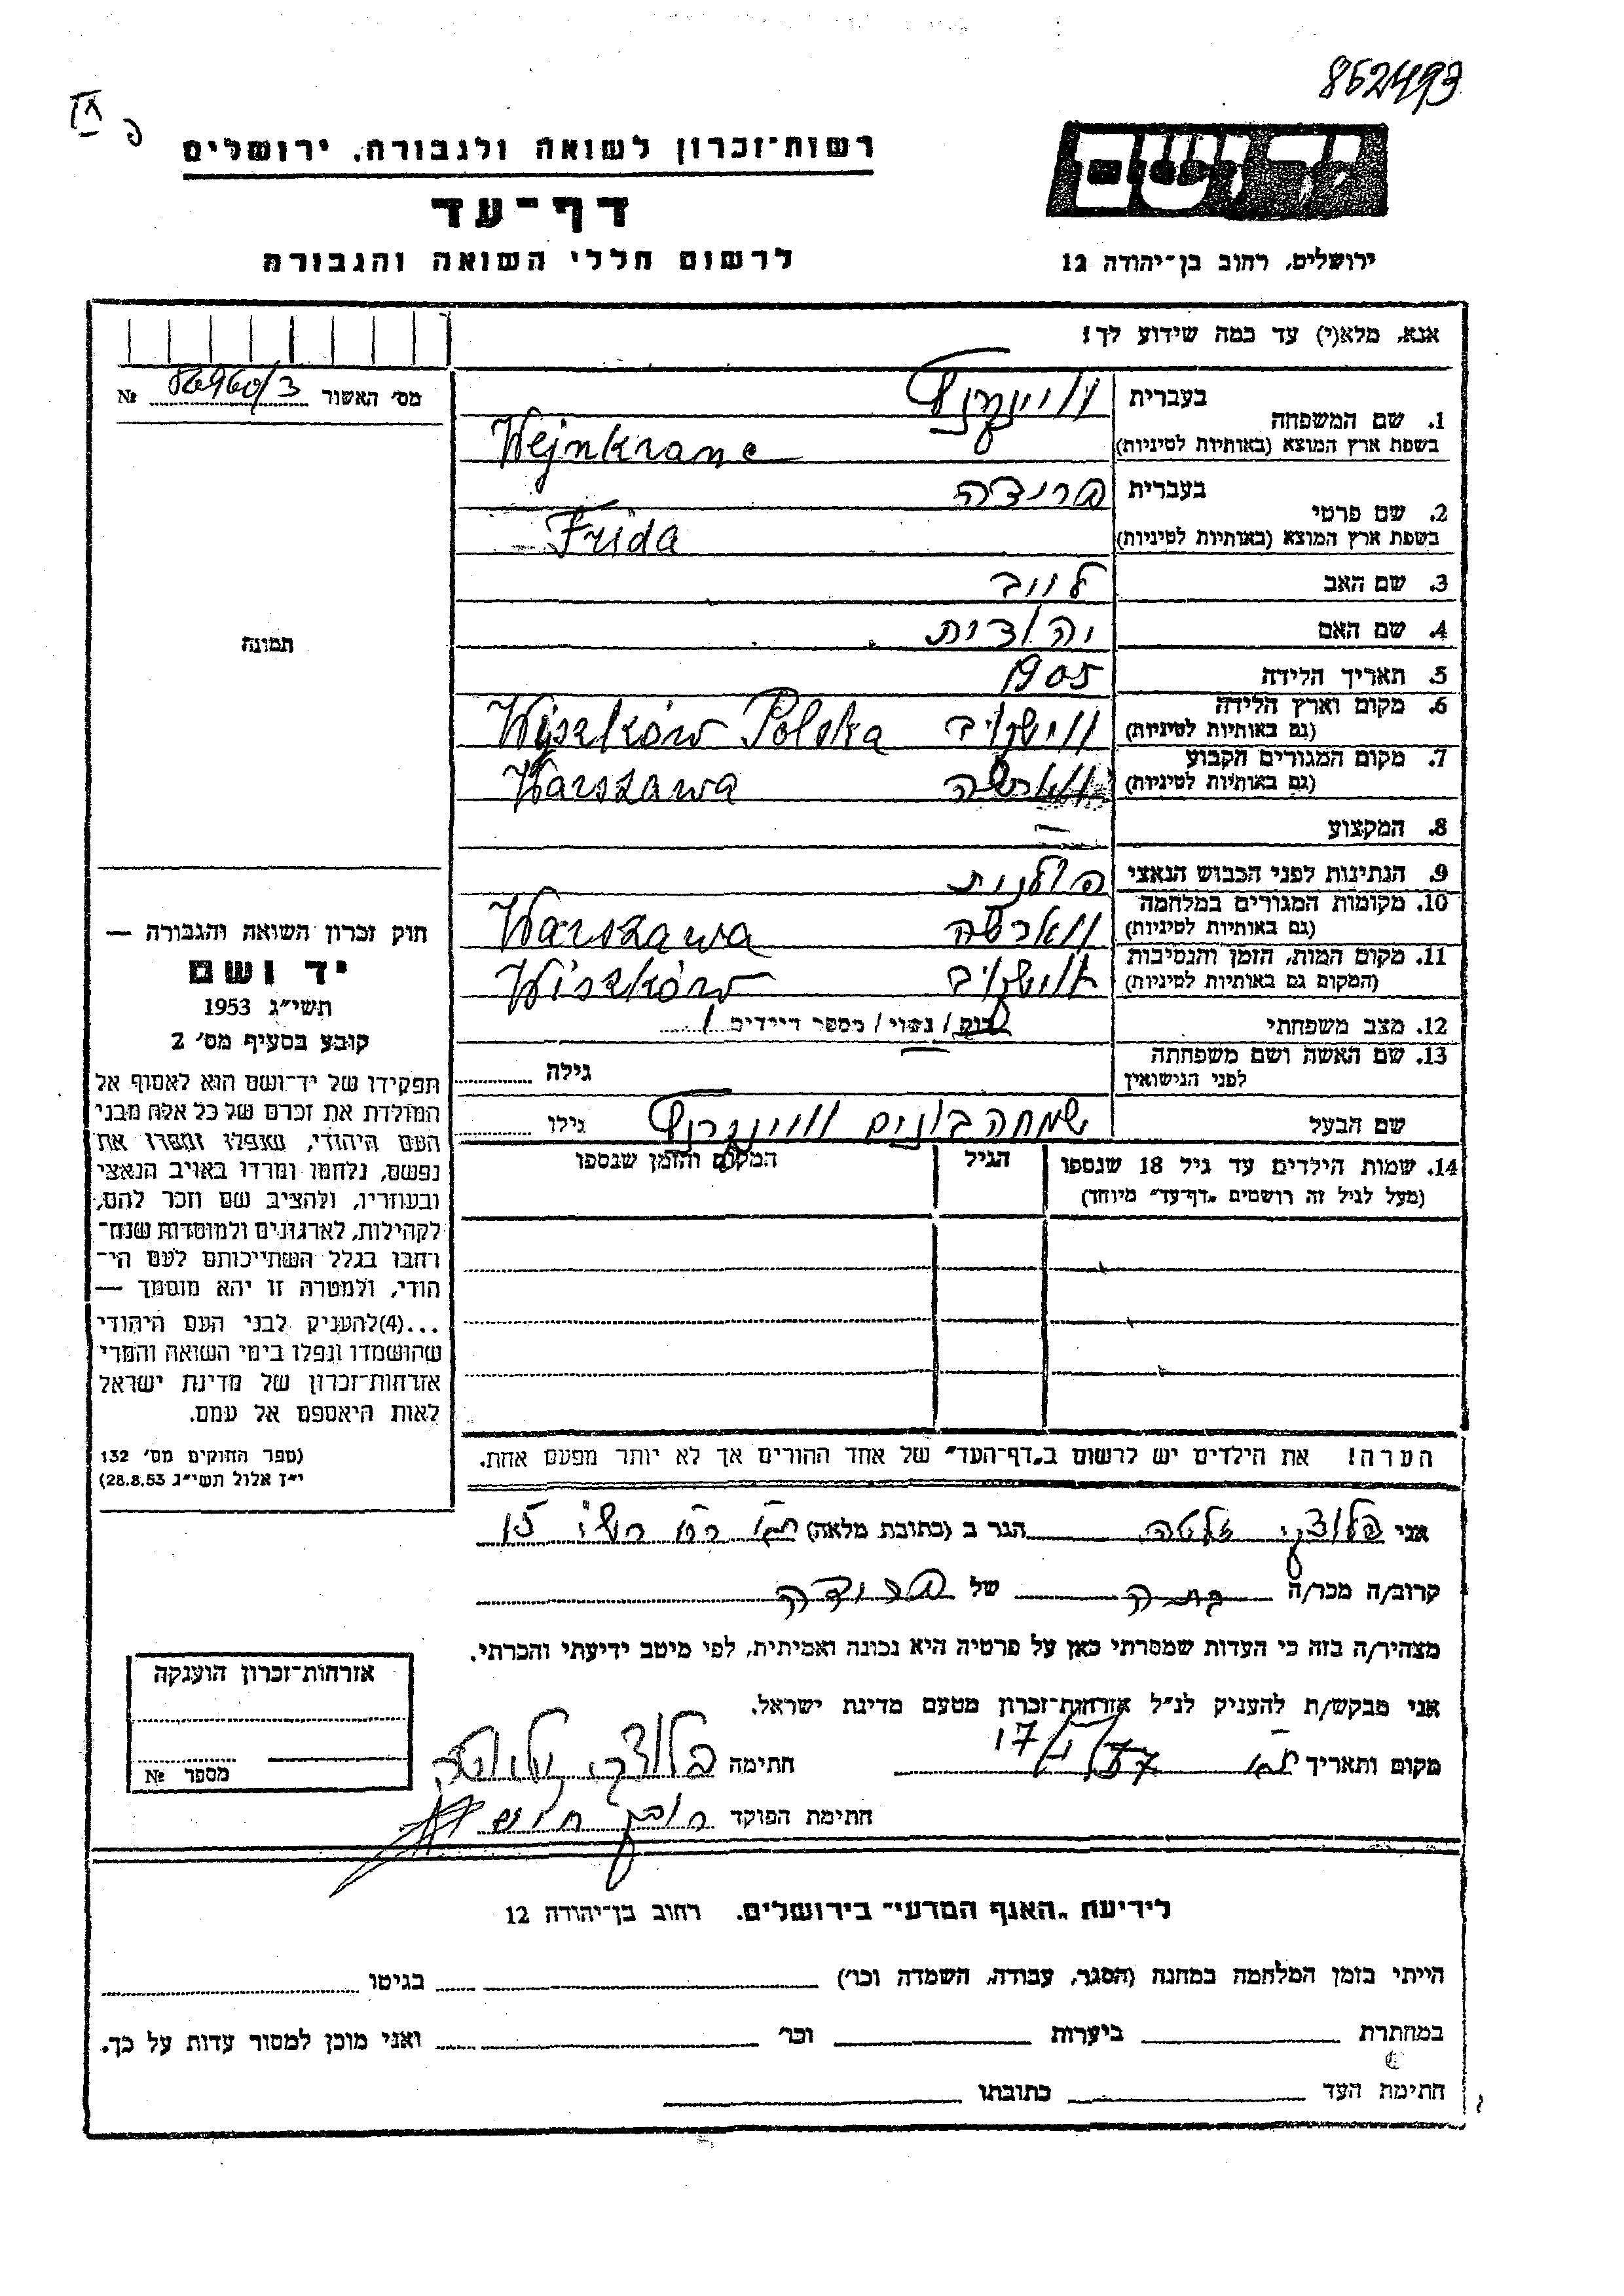 862493
רשות־זכרון לשואה ולגבורה, ירושלים
דף־עד
לרשום חללי השואה והגבורה
יד ושם
ירושלים, רחוב בן־יהודה 12
אנא, מלא(י) עד כמה שידוע לך!
מס׳ האשור 86960/3 №
1. שם המשפחה בעברית ווינקרנץ
בשפת ארץ המוצא (באותיות לטיניות) Wejnkranc
2. שם פרטי בעברית פרידה
בשפת ארץ המוצא (באותיות לטיניות) Frida
3. שם האב לייב
4. שם האם יהודית
5. תאריך הלידה 1905
6. מקום וארץ הלידה (גם באותיות לטיניות) ווישקוב Wyszków Polska
7. מקום המגורים הקבוע (גם באותיות לטיניות) ווארשה Warszawa
8. המקצוע —
9. הנתינות לפני הכבוש הנאצי פולנית
10. מקומות המגורים במלחמה (גם באותיות לטיניות) ווארשה Warszawa
11. מקום המות, הזמן והנסיבות (המקום גם באותיות לטיניות) ווישקוב Wiszków
12. מצב משפחתי רוק / נשוי / מספר הילדים 1
13. שם האשה ושם משפחתה לפני הנישואין גילה
שם הבעל שמחה בונים ווינקרנץ גילו
14. שמות הילדים עד גיל 18 שנספו
(מעל לגיל זה רושמים „דף־עד״ מיוחד)
הגיל
המקום והזמן שנספו
הערה! את הילדים יש לרשום ב„דף־העד״ של אחד ההורים אך לא יותר מפעם אחת.
תמונה
חוק זכרון השואה והגבורה —
יד ושם
תשי״ג 1953
קובע בסעיף מס׳ 2
תפקידו של יד־ושם הוא לאסוף אל
המולדת את זכרם של כל אלה מבני
העם היהודי, שנפלו ומסרו את
נפשם, נלחמו ומרדו באויב הנאצי
ובעוזריו, ולהציב שם וזכר להם,
לקהילות, לארגונים ולמוסדות שנח־
רחבו בגלל השתייכותם לעם הי־
הודי, ולמטרה זו יהא מוסמך —
...(4)להעניק לבני העם היהודי
שהושמדו ונפלו בימי השואה והמרי
אזרחות־זכרון של מדינת ישראל
לאות היאספם אל עמם.
(ספר החוקים מס׳ 132
י״ז אלול תשי״ג 28.8.53)
אני פלוצקי הגר ב (כתובת מלאה) 15
קרוב/ה מכר/ה בתה של פרידה
מצהיר/ה בזה כי העדות שמסרתי כאן על פרטיה היא נכונה ואמיתית, לפי מיטב ידיעתי והכרתי.
אני מבקש/ת להעניק לנ״ל אזרחות־זכרון מטעם מדינת ישראל.
מקום ותאריך חתימה פלוצקי
חתימת הפוקד
אזרחות־זכרון הוענקה
מספר №
לידיעת „האגף המדעי״ בירושלים. רחוב בן־יהודה 12
הייתי בזמן המלחמה במחנה (הסגר, עבודה, השמדה וכו׳) בגיטו
במחתרת ביערות וכו׳ ואני מוכן למסור עדות על כך.
חתימת העד כתובתו